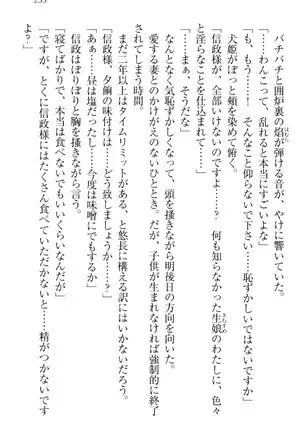 233
パチパチと囲炉裏の焔が弾ける音が、やけに響いている。
「……わんこって、乱れると本当にすごいよな」
「も、もう……！ そんなこと仰らないで下さい……恥ずかしいではないですか」
犬姫がぽっと頰を染めて俯く。
「信政様が、全部いけないのですよ……？ 何も知らなかった生娘のわたしに、色々
と淫らなことを仕込まれて……」
「……まぁ、そうだな」
なんとなく気恥ずかしくなって、頭を掻きながら明後日の方向を向いた。
愛する妻とのかけがえのないひととき。だが、子供が生まれなければ強制的に終了
されてしまう時間。
まだ二年以上はタイムリミットがある、と悠長に構える訳にはいかないだろう。
「信政様、夕餉の味付けは……どう致しましょうか……？」
「あぁ……昼は塩だったし……今度は味噌にでもするか」
信政はぽりぽりと胸を掻きながら言う。
「寝てばかりで、本当は食べないでもいいくらいなんだが」
「ですが、とくに信政様にはたくさん食べていただかないと……精がつかないです
よ？」